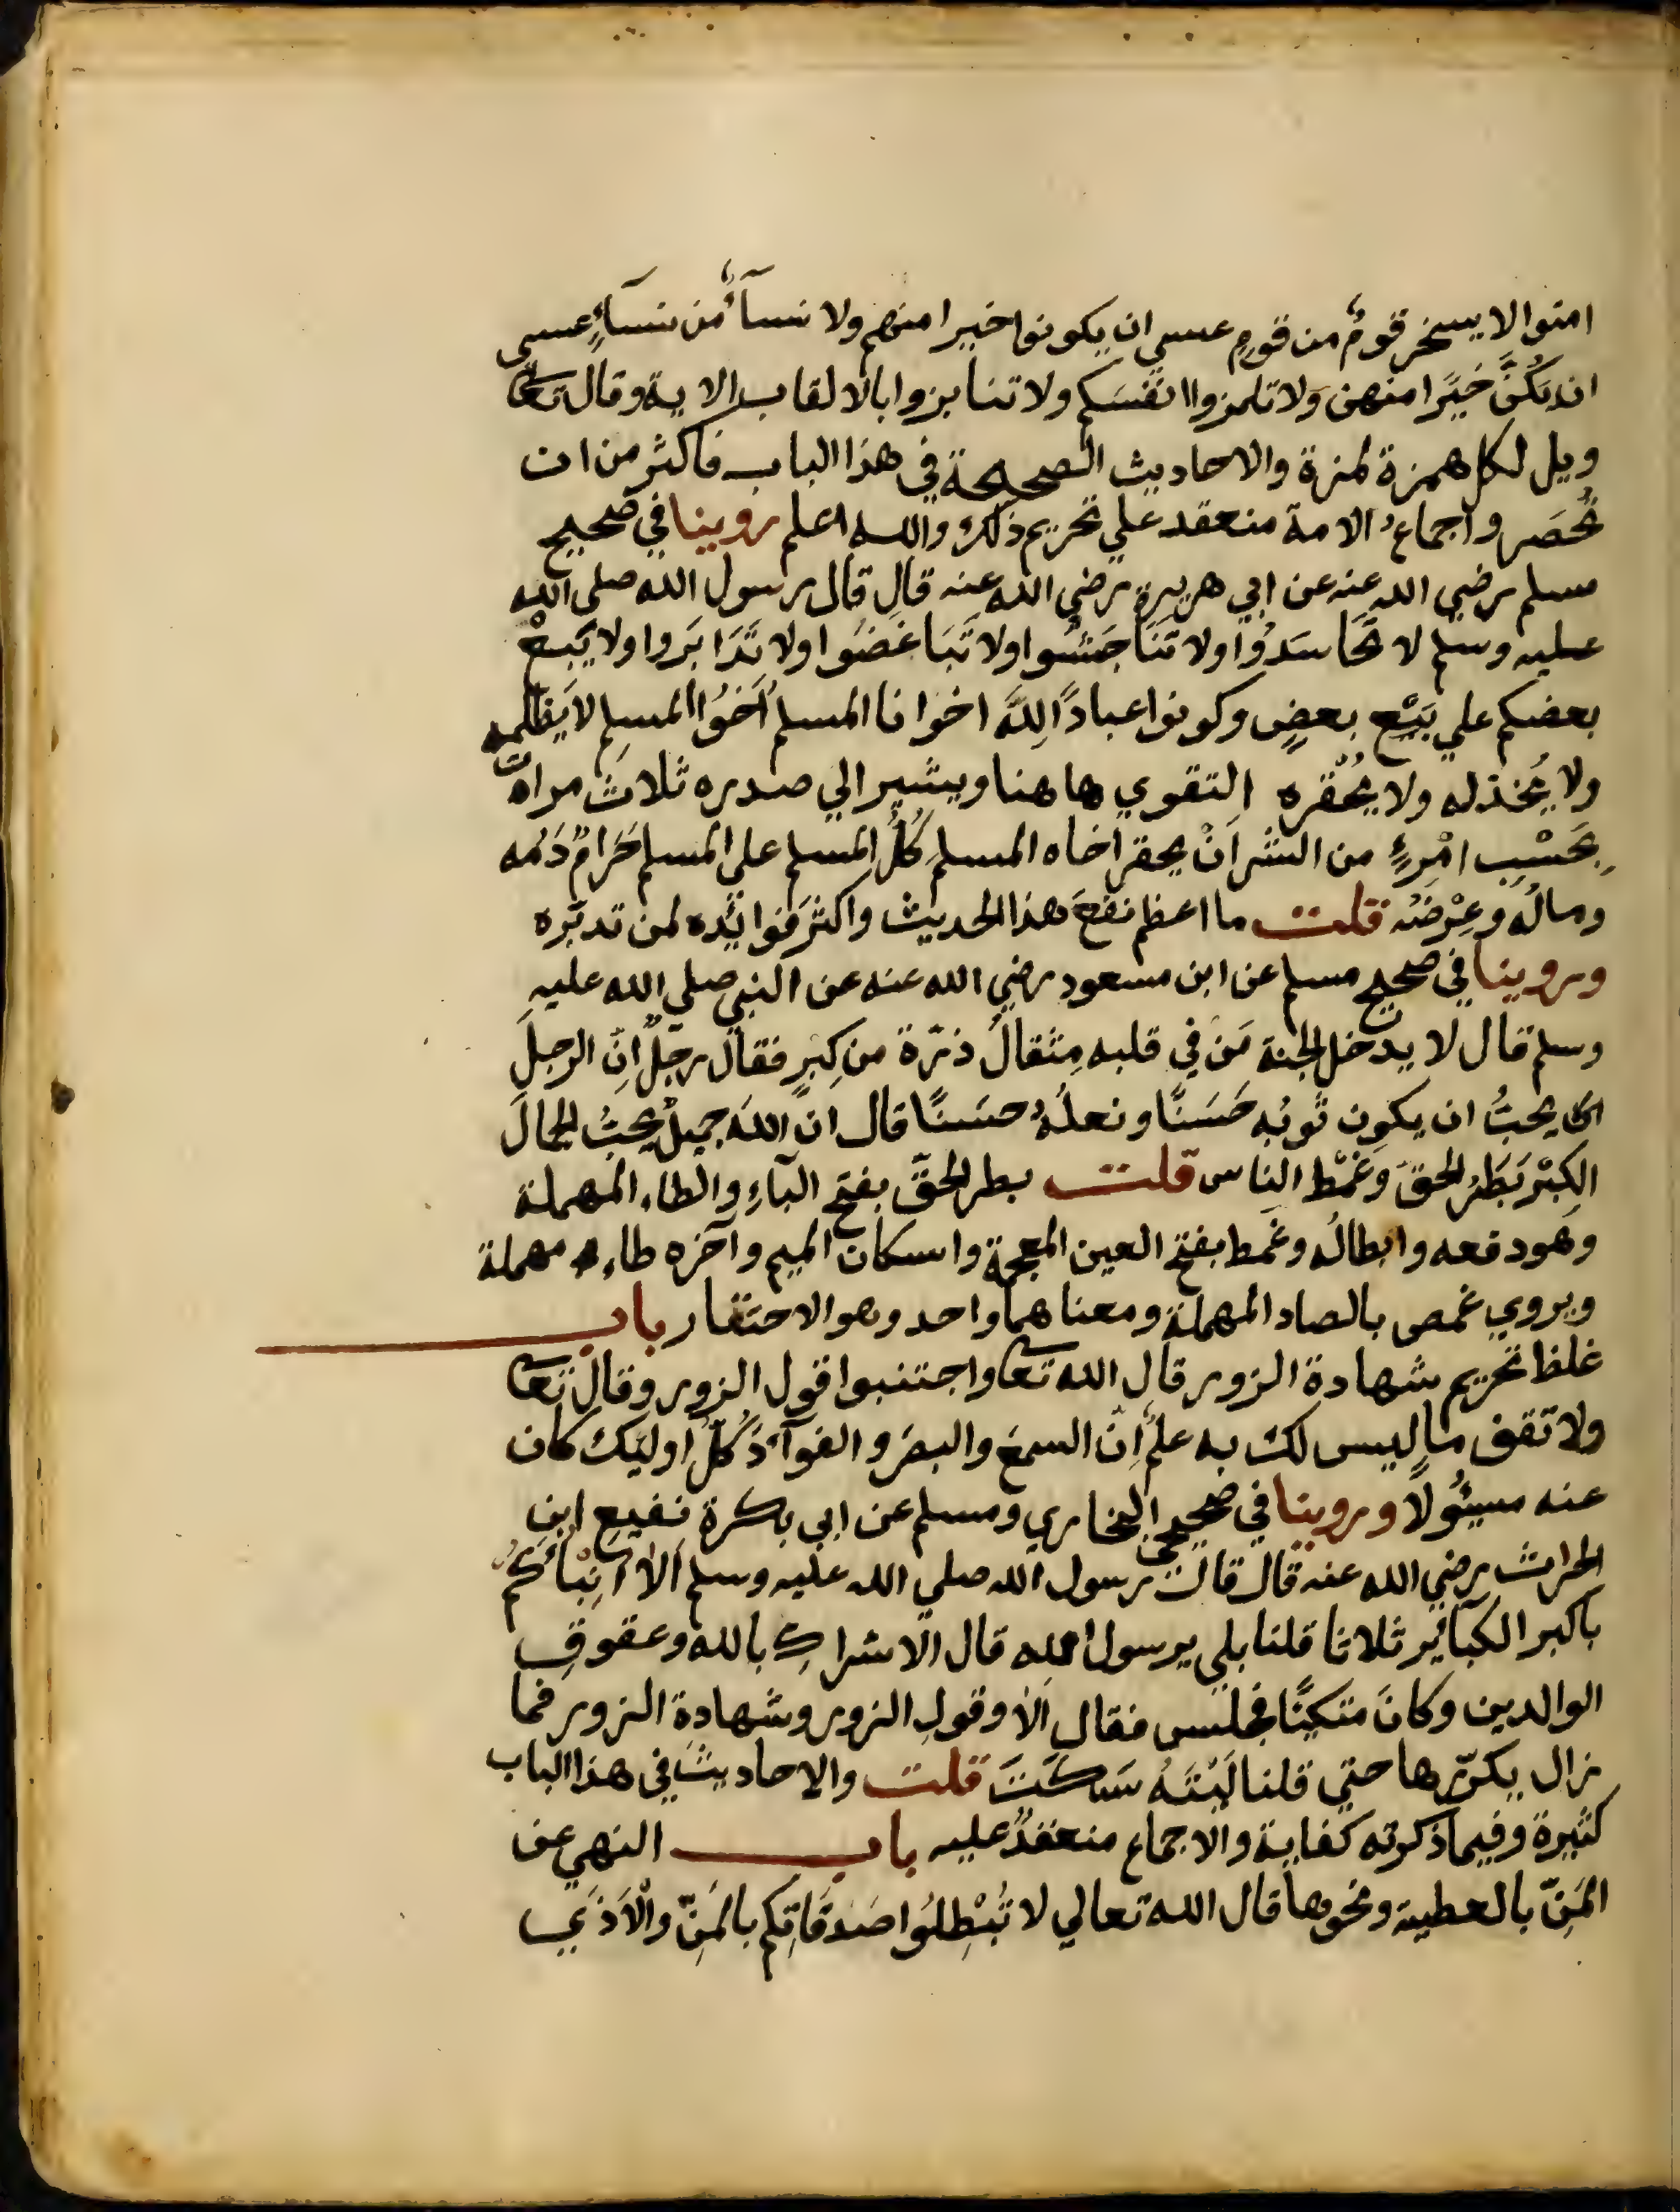 امنوا لا يسخر قومٌ من قومٍ عسي ان يكونوا خيرا منهم ولا نسآءٌ من نسآءٍ عسي
ان يَكُنَّ خَيْرًا منهن وَلا تلمزوا انفسَكم ولا تنابزوا بالالقاب الاية وقال تعا
ويل لكل همزة لمزة والاحاديث الصحيحة في هذا الباب فاكثر من ان
تُحصَر واجماعُ الامة منعقد علي تحريم ذلك والله اعلم روينا في صحيح
مسلم رضي الله عنه عن ابي هريرة رضي الله عنه قال قال رسول الله صلى الله
عليه وسلم لا تحَاسَدُوا ولا تَنَاجَشُوا ولا تَبَاغَضُوا ولا تَدَابَروا ولا يَبِعْ
بعضكم علي بَيْعِ بعضٍ وكونوا عبادًا لِلَّهِ اخوانا المسلم اَخُوا المسلِم لا يَظلمه
ولا يُخذله ولا يُحْقره التقوي هاهنا ويشير الي صدره ثلاثَ مراةٍ
بِحَسْبِ امْرِءٍ من الشر اَنْ يحقر اخاه المسلم كُلُ المسلم علي المسلم حَرامٌ دَمُه
ومالُه وعِرْضُه قلت ما اعظم نفعَ هذا الحديث واكثرَ فوائِدَه لمن تدبّره
وروينا في صحيح مسلم عن ابن مسعود رضي الله عنه عن النبي صلي الله عليه
وسلم قال لا يدخل الجنة مَن في قلبه مِثقالُ ذرّة من كِبرٍ فقال رجلٌ اِنّ الرجلَ
يحبُّ ان يكون ثوبُه حَسَنًا ونعلُهُ حسَنًا قال ان اللهَ جميلٌ يحبُّ الجمالَ
الكِبْر بَطَرُ الحقِ وَغَمْط الناس قلت بطر الحقّ بفتح البآءِ والطاء المهملة
وهو دفعه وابطالُه وغمط بفتح العين المعجمة واسكان الميم وآخره طاء مهملة
ويروي غمص بالصاد المهملة ومعناهما واحد وهو الاحتقار باب
غلظ تحريم شهادة الزور قال الله تعا واجتنبوا قول الزور وقال تعا
ولا تقف ما ليس لك به علمٌ اِنّ السمعَ والبصَر والفوآدَ كُلُ اوليَك كان
عنه مسئُولًا وروينا في صحيحي البخاري ومسلم عن ابي بكرة نفيع ابن
الحارث رضي الله عنه قال قال رسول الله صلي الله عليه وسلم اَلا اُنِبْأُكُم
باكبر الكبآئِر ثلاثا قلنا بلي يرسول الله قال الاشراك بالله وعقوق
الوالدين وكانَ متكيًا فجلس فقال اَلا وقول الزور وشهادة الزور فما
زال يكرّرها حتي قلنا لَيْتَهُ سَكَتَ قلت والاحاديث في هذا الباب
كثيرة وفيما ذكرته كفاية والاجماع منعقدٌ عليه باب النهي عن
المَنِّ بالعطية ونحوها قال الله تعالي لا تُبْطِلُوا صَدَقَاتِكم بالمَنِّ والْاَذَي